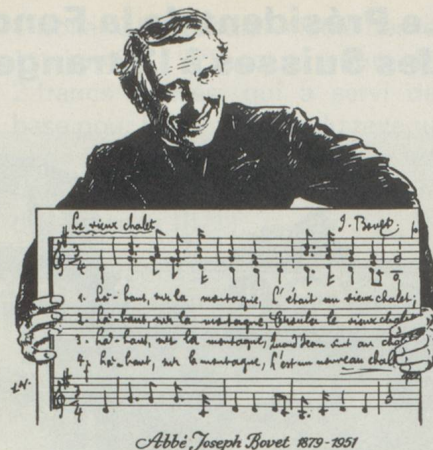 Le vieux chalet J. Bovet
1. Là-haut, sur la montagne, L'était un vieux chalet;
2. Là-haut, sur la montagne, Croula le vieux chalet
3. Là-haut, sur la montagne, Quand Jean vint au chalet
4. Là-haut, sur la montagne, L'est un nouveau chalet
Abbé Joseph Bovet 1879-1951